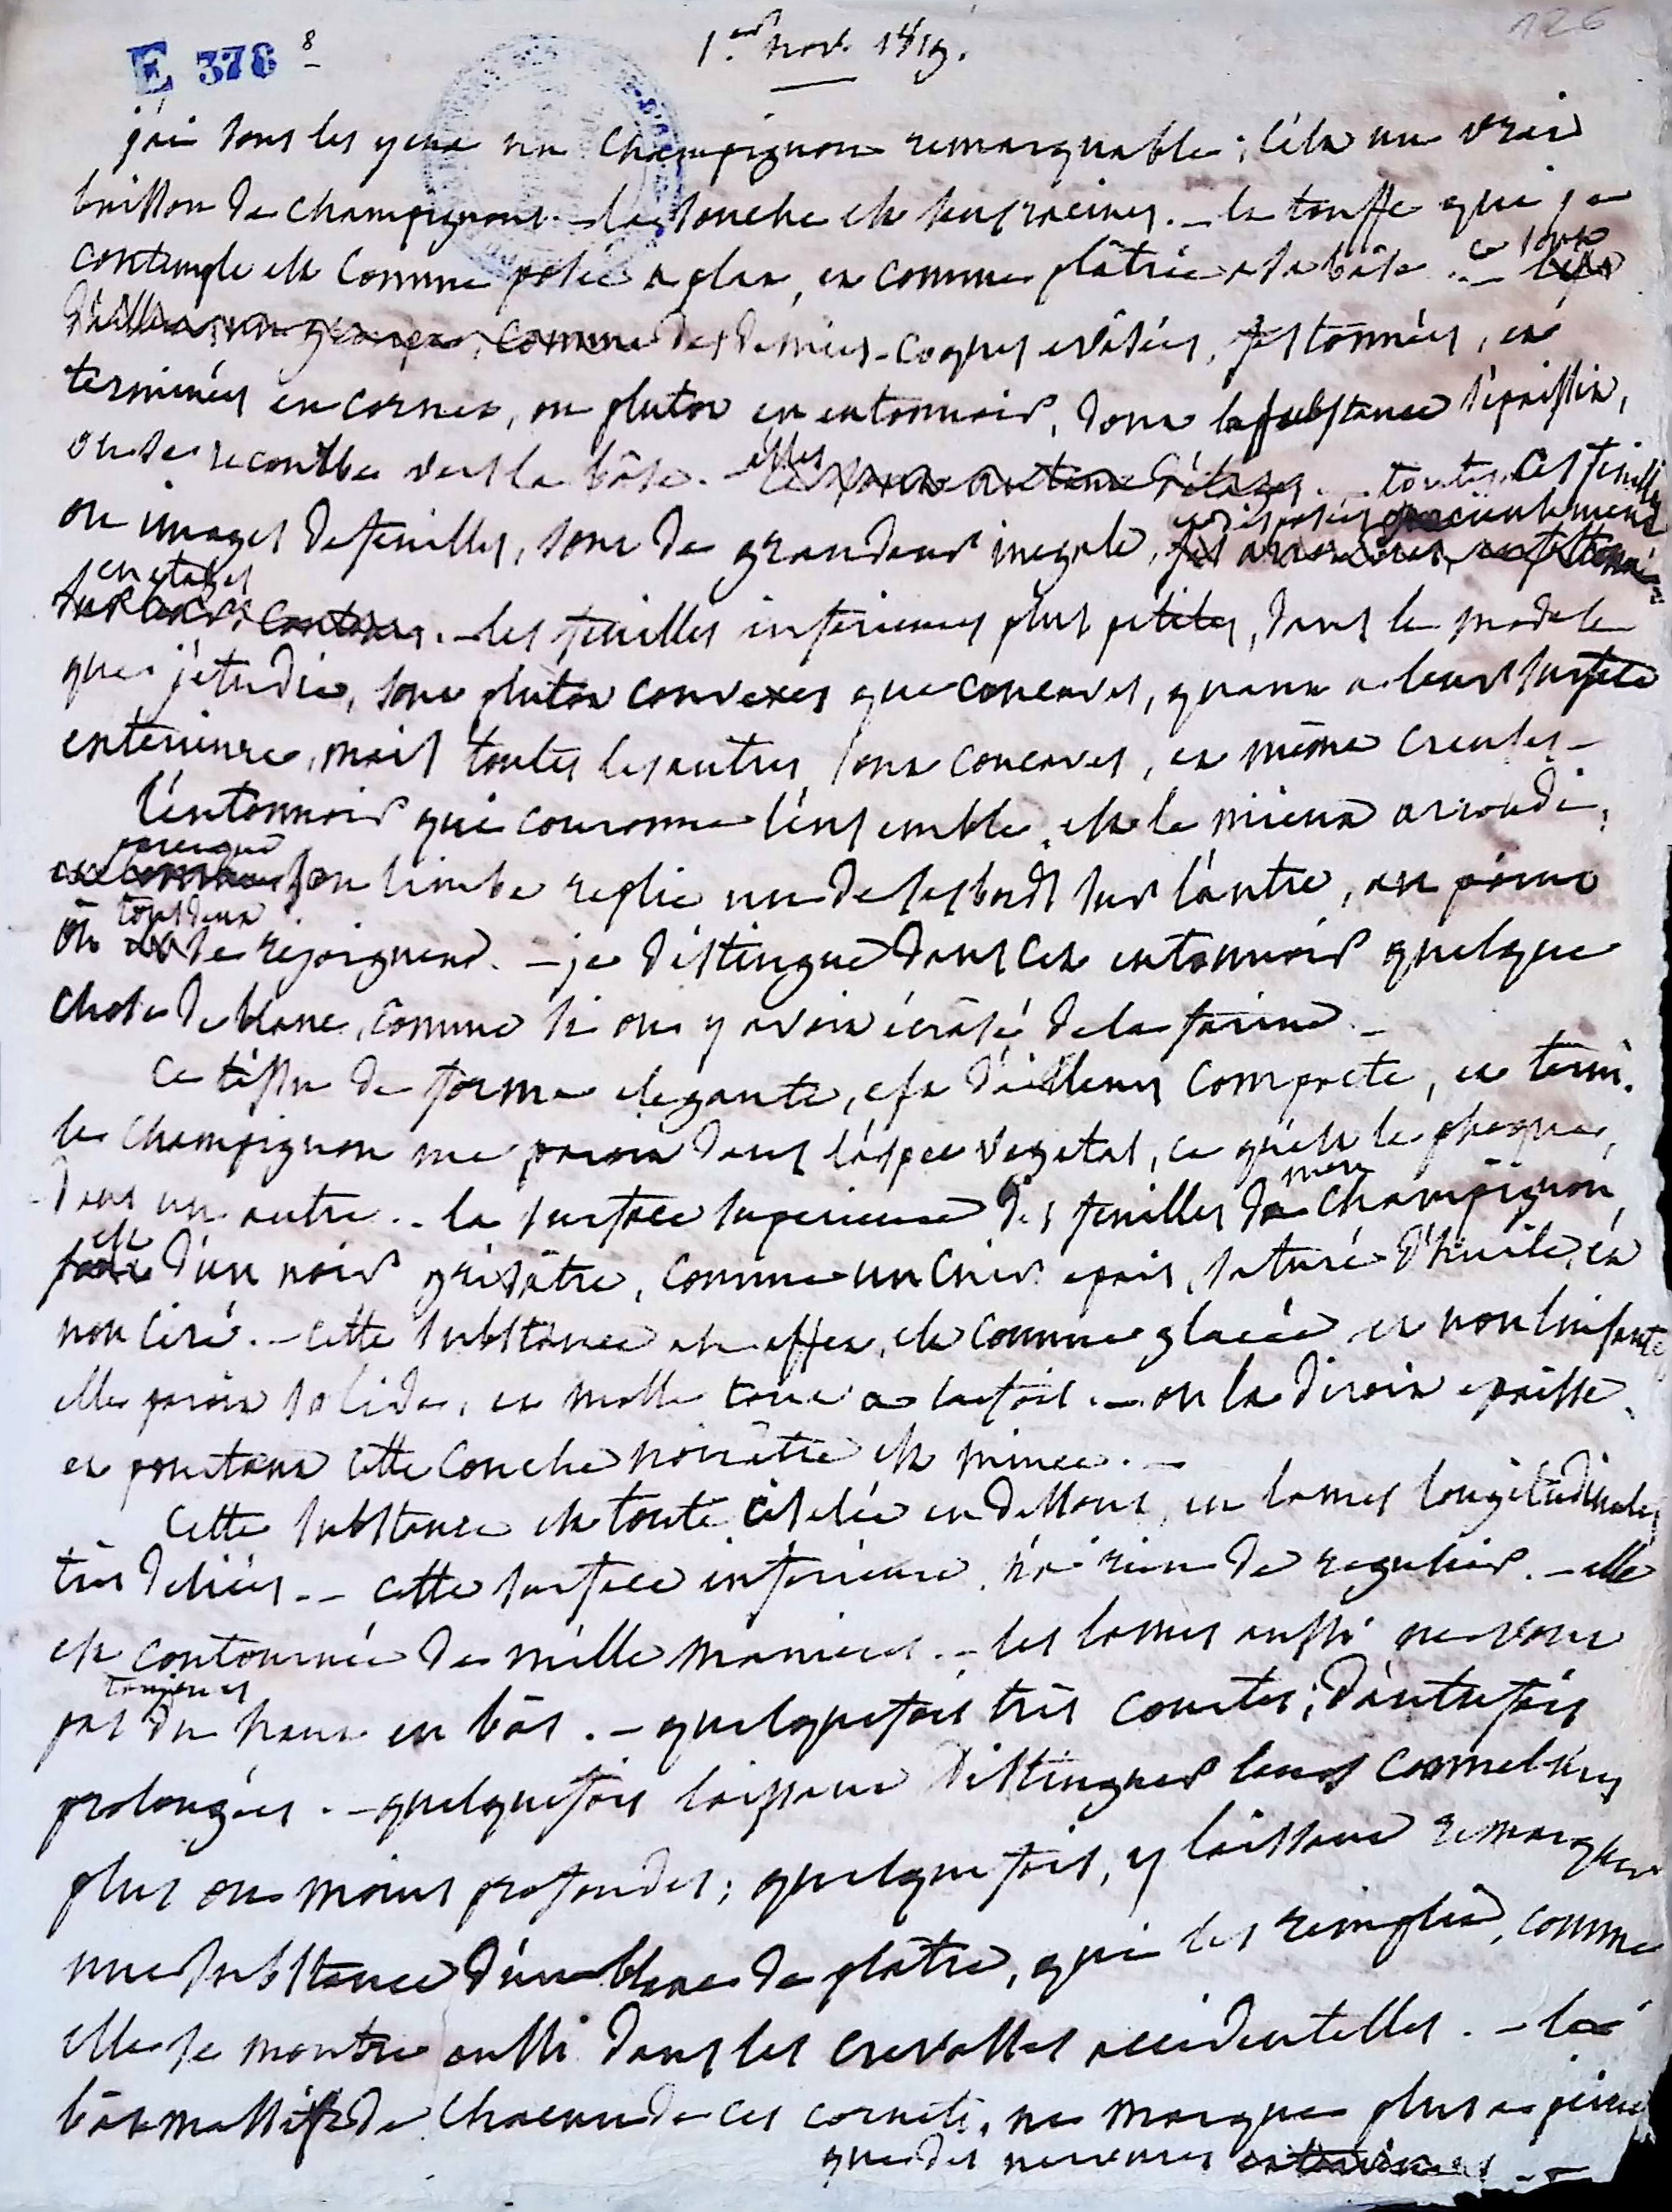 126
E 376 8
1.er nov. 1819.
j'ai sous les yeux un champignon remarquable ; c'est un vrai
buisson de champignons. – la souche est sans racines. – la touffe que je
contemple est comme posée a plat, et comme plâtrée a sa bâse. – ce sont
comme des demies-coques evâsées, festonnées, et
terminées en cornet, ou plutot en entonnoir, dont la substance s'épaissit,
ou se recourbe vers la bâse. – elles – toutes ces feuilles
ou images de feuilles, sont de grandeur inegale, et disposées
en etages – les feuilles inferieures plus petites, dans le modele
que j'étudie, sont plutot convexes que concaves, quant a leur surface
exterieure, mais toutes les autres sont concaves, et même creuses –
l'entonnoir qui couronne l'ensemble, est le mieux arrondi,
parceque son limbe replie un de ses bords sur l'autre, au point
où tous deux se rejoignent. – je distingue dans cet entonnoir quelque
chose de blanc, comme si on y avoit écrâsé de la farine –
ce tissu de forme elegante, est d'ailleurs compacte, et terni.
le champignon me paroit dans l'aspec vegetal, ce qu'est le phoque,
dans un autre. – la surface superieure des feuilles de mon champignon,
est d'un noir grisâtre, comme un cuir epais, saturé d'huile, et
non ciré. – cette substance en effet, est comme glacée et non luisante
elle paroit solide, et molle tout a la fois. – on la diroit epaisse,
et pourtant cette couche noirâtre est mince. –
cette substance est toute ciselée en dessous, en lames longitudinales
très deliées. – cette surface inferieure, n'a rien de regulier. – elle
est contournée de mille manieres. – les lames aussi ne vont
pas toujours du haut en bâs. – quelquefois très courtes ; d'autrefois
prolongées. – quelquefois laissant distinguer leurs cannelures
plus ou moins profondes ; quelquefois, y laissant remarquer
une substance d'un blanc de plâtre, qui les remplit, comme
elle se montre aussi dans les crevasses accidentelles. – la
bâse massive de chacun de ces cornets, ne marque plus a peine
que des nervures